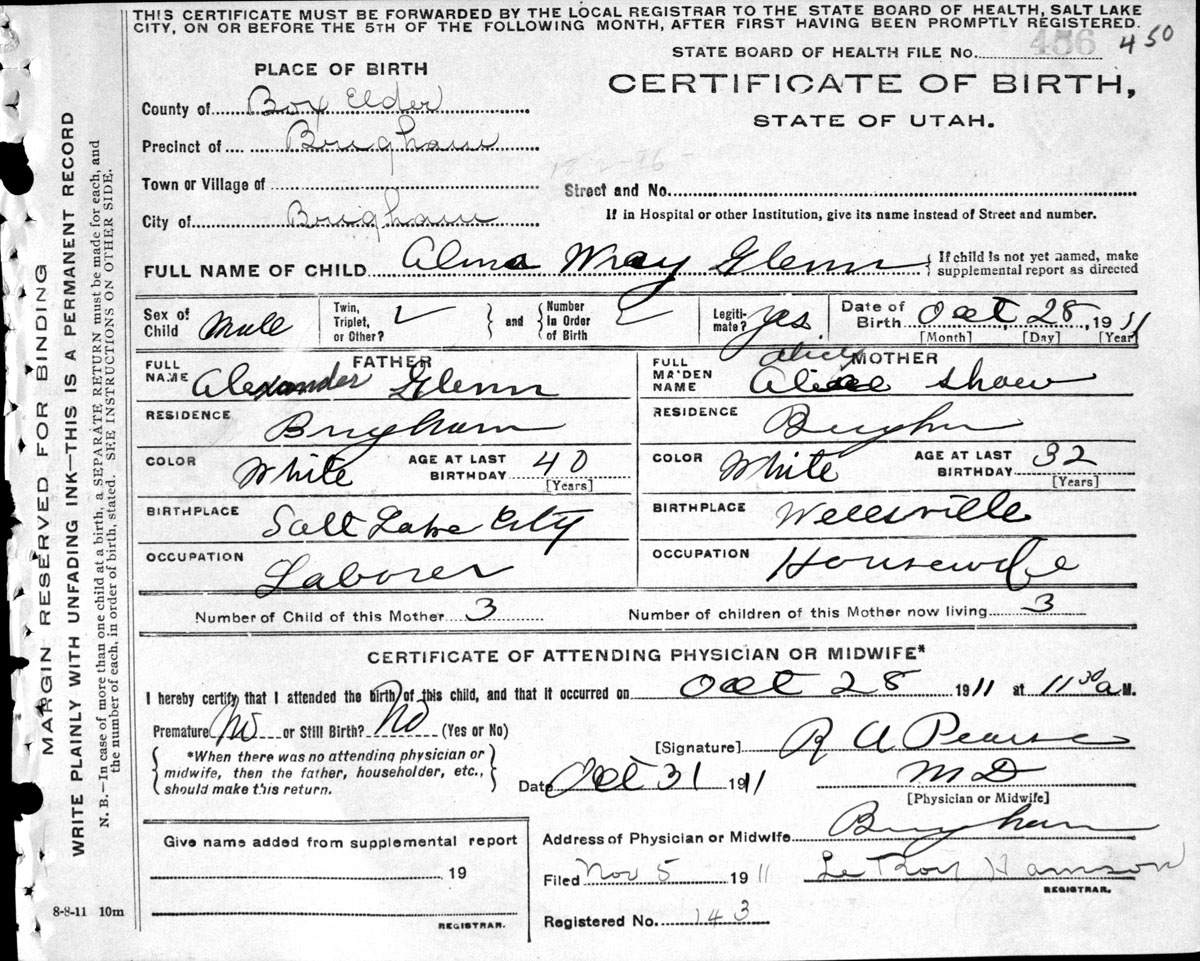 THIS CERTIFICATE MUST BE FORWARDED BY THE LOCAL REGISTRAR TO THE STATE BOARD OF HEALTH, SALT LAKE
CITY, ON OR BEFORE THE 5TH OF THE FOLLOWING MONTH, AFTER FIRST HAVING BEEN PROMPTLY REGISTERED.
STATE BOARD OF HEALTH FILE No. 456 450
PLACE OF BIRTH
CERTIFICATE OF BIRTH,
STATE OF UTAH.
County of Box Elder
Precinct of Brigham
Town or Village of
Street and No.
City of Brigham
If in Hospital or other Institution, give its name instead of Street and number.
FULL NAME OF CHILD Alma Wray Glenn { If child is not yet named, make supplemental report as directed
Sex of Child Male
Twin, Triplet, or Other? } and { Number In Order of Birth
Legitimate? yes
Date of Birth Oct 28, 1911
[Month] [Day] [Year]
FATHER
FULL NAME Alexander Glenn
MOTHER
FULL MAIDEN NAME Alice Shaw
RESIDENCE Brigham
RESIDENCE Brigham
COLOR White AGE AT LAST BIRTHDAY 40 [Years]
COLOR White AGE AT LAST BIRTHDAY 32 [Years]
BIRTHPLACE Salt Lake City
BIRTHPLACE Wellsville
OCCUPATION Laborer
OCCUPATION Housewife
Number of Child of this Mother 3
Number of children of this Mother now living 3
CERTIFICATE OF ATTENDING PHYSICIAN OR MIDWIFE*
I hereby certify that I attended the birth of this child, and that it occurred on Oct 28 1911 at 11 30 a M.
Premature No or Still Birth? No (Yes or No)
{ *When there was no attending physician or midwife, then the father, householder, etc., should make this return. }
[Signature] R A Pearse
M D
[Physician or Midwife]
Date Oct 31 1911
Give name added from supplemental report
19
REGISTRAR.
Address of Physician or Midwife Brigham
Filed Nov 5 1911
REGISTRAR.
Registered No. 143
8-8-11 10m
MARGIN RESERVED FOR BINDING
WRITE PLAINLY WITH UNFADING INK—THIS IS A PERMANENT RECORD
N. B.—In case of more than one child at birth, a SEPARATE RETURN must be made for each, and
the number of each, in order of birth, stated. SEE INSTRUCTIONS ON OTHER SIDE.